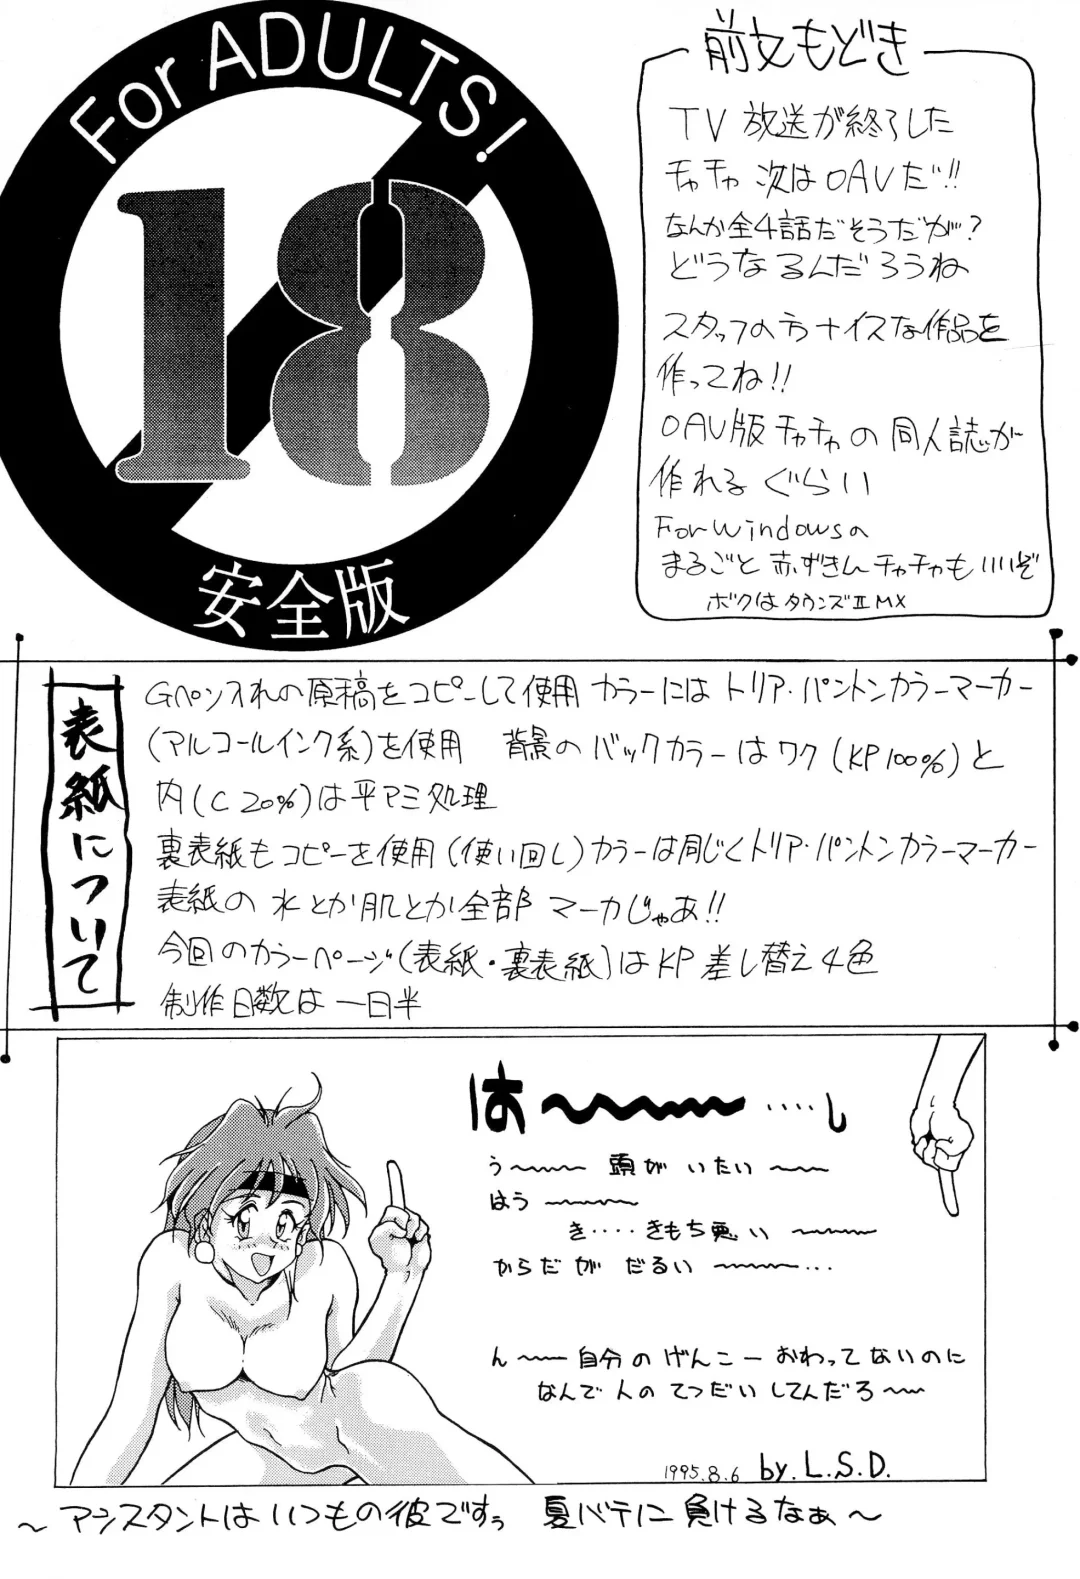 For ADULTS!
18
安全版
前文もどき
TV放送が終了した
チャチャ 次はOAVだ!!
なんか全4話だそうだが?
どうなるんだろうね
スタッフの方ナイスな作品を
作ってね!!
OAV版チャチャの同人誌が
作れるぐらい
For Windowsの
まるごと赤ずきんチャチャもいいぞ
ボクはタウンズⅡMX
表紙について
Gペン入れの原稿をコピーして使用 カラーにはトリア・パントンカラーマーカー
(アルコールインク系)を使用 背景のバックカラーはワク(KP100%)と
内(C20%)は平アミ処理
裏表紙もコピーを使用(使い回し)カラーは同じくトリア・パントンカラーマーカー
表紙の水とか肌とか全部 マーカじゃあ!!
今回のカラーページ(表紙・裏表紙)はKP差し替え4色
制作日数は一日半
は〜〜〜····し
う〜〜 頭がいたい〜〜
はう〜〜〜
き····きもち悪い〜〜〜
からだがだるい〜〜〜···
ん〜〜自分のげんこーおわってないのに
なんで人のてつだいしてんだろ〜〜
1995.8.6 by.L.S.D.
〜アシスタントはいつもの彼ですぅ 夏バテに負けるなぁ〜